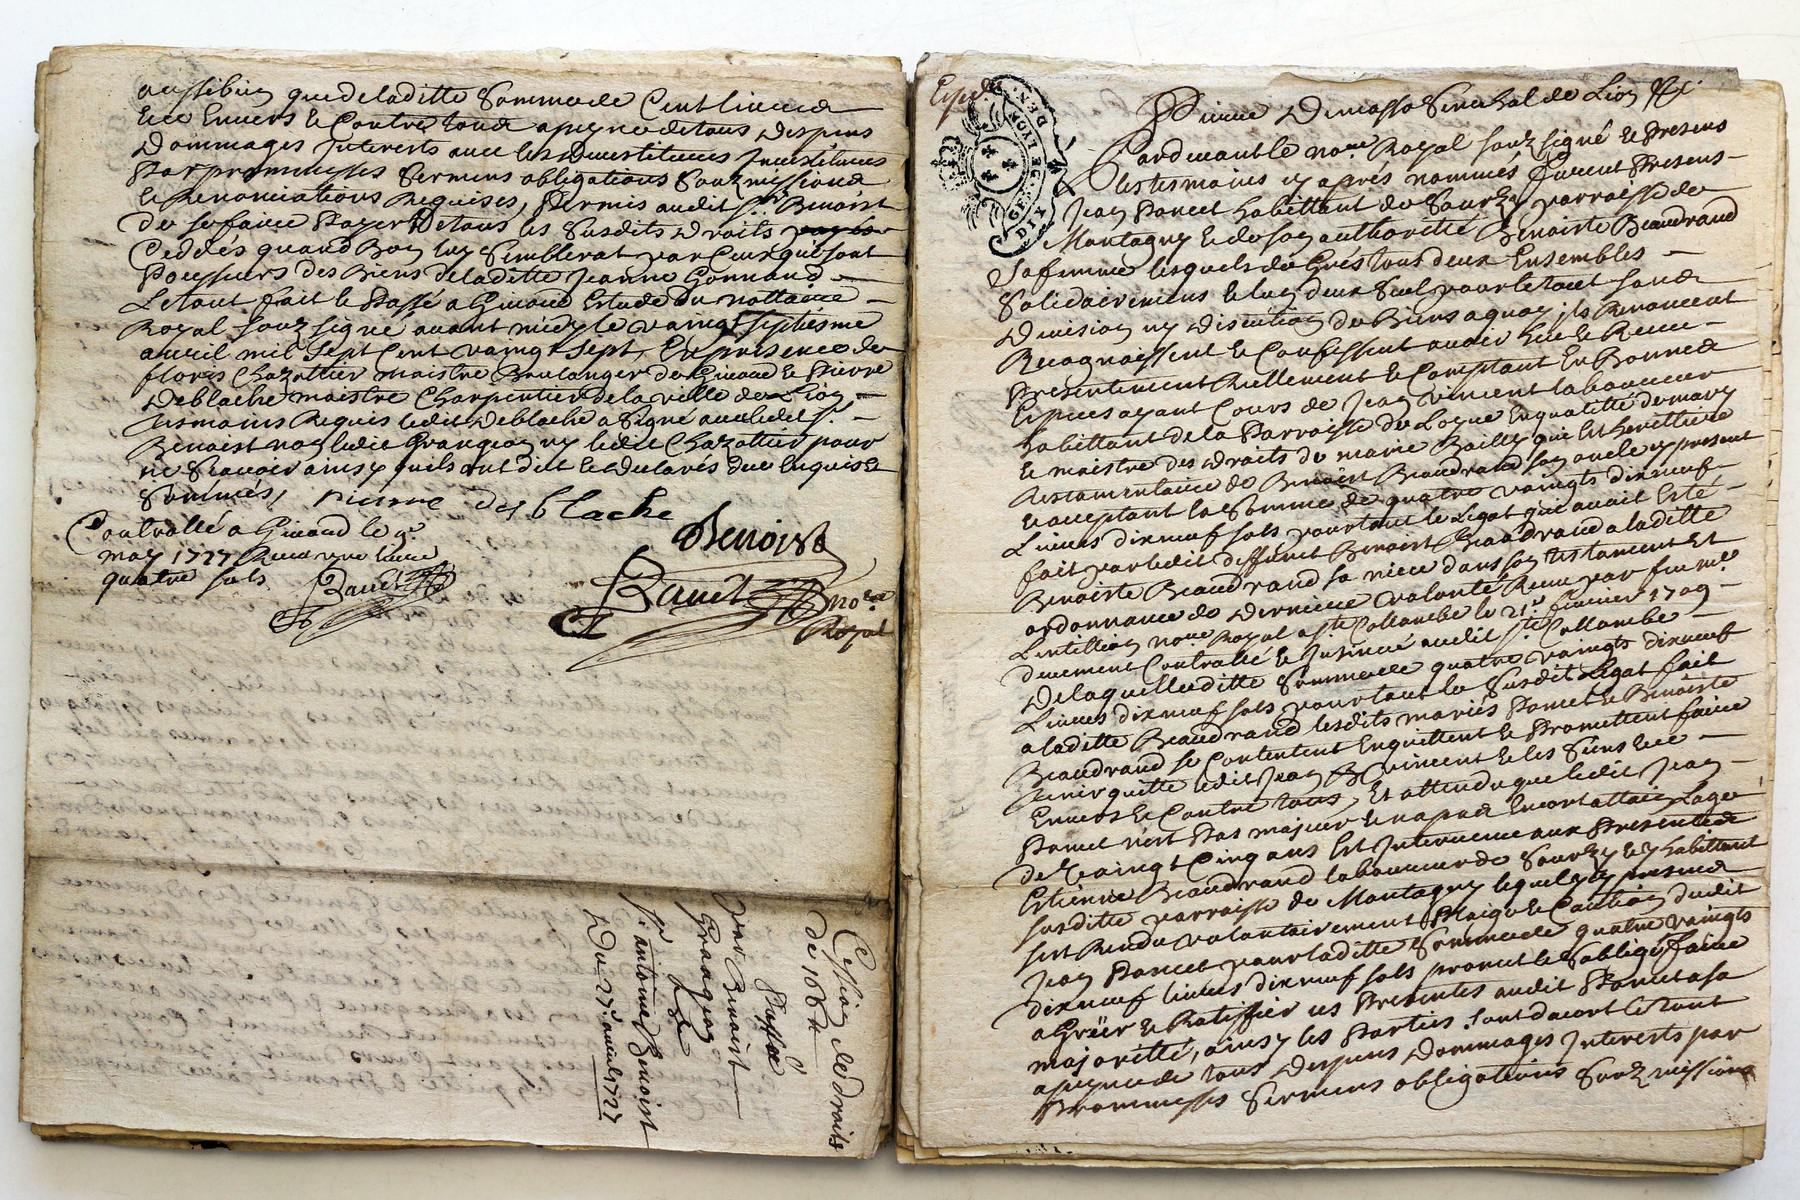 aussibien que de laditte Somme de Cent livres
Envers et Contre tous a peyne de tous despens
Dommages Interests avec les
Par promesses Sermens obligations Soubzmissions
et Renonciations Requises, Permis audit Sr. Benoist
de se faire Payer De tous les Susdits Droits
Ceddés quand Bon luy Semblerat par Ceux qui sont
Possesseurs des Biens de laditte Jeanne Gonnand
Le tout fait et Passé a Givord Estude du nottaire
Royal soubz signé avant midy le vaingt septiesme
avril mil Sept Cent vaingt Sept, En presence de
floris Chazottier maistre Boulanger de Givord et Pierre
Deblache maistre Charpentier de la ville de Lion
tesmoins Requis ledit Deblache a Signé avec ledit Sr.
Benoist non ledit Grangeon ny ledit Chazottier pour
ne Scavoir ainsy quils ont dit et declarés de ce Enquis et
Sommés, pierre des blache
Benoist
Controllé a Givord le
may 1727 Receu une livre
quatre sols
Bauet
Bauet nore
Royal
Cession de droits
de 166 #
Passée
par Benoist
Grangeon
a
Sr. antoine Benoist
Du 27e avril 1727
Expedié
GEN. DE LYON
DIX DEN.
Pierre Demasso Senechal de Lion &c.
Pardevant le nore Royal soubz signé et Presens
les tesmoins cy apres nommés furent Presens
Jean Poncet habittant de Sourzy parroisse de
Montagny et de son authorité Benoiste Beaudrand
Sa femme lesquels de Gres tous deux Ensembles
Solidairement et lun deux Seul pour le tout sans
Division ny discution de Biens a quoy ils Renoncent
Recognoissent et Confessent avoir heu et Receu
Presentement Reellement et Comptant En Bonnes
Especes ayant Cours de Jean vincent laboureur
habittant de la Parroisse de Loyre En qualitté de mary
et maistre des Droits de marie Bailly que Est heritiere
testamentaire de Benoist Beaudrand son oncle cy present
et acceptant la Somme de quatre vaingts dixneuf
Livres dixneuf sols pour tout le Legat que avait Esté
fait par ledit deffunt Benoist Beaudrand a laditte
Benoiste Beaudrand sa niece dans son testament Et
ordonnance de derniere volonté Receu par feu me.
Lentillion nore Royal a Ste Collombe le 21e. fevrier 1709
deuement Controllé et Insinué audit Ste Collombe
De laquelle ditte Somme de quatre vaingts dixneuf
Livres dixneuf sols pour tout le Susdit Legat fait
a laditte Beaudrand lesdits mariés Poncet et Benoiste
Beaudrand se Contentent Enquittent et Promettent faire
tenir quitte ledit Jean vincent et les Siens
Envers et Contre tous, Et attendu que ledit Jean
Poncet nest Pas majeur et na pas Encor attain Lage
de vaingt Cinq ans Est Intervenu aux Presentes
Estienne Beaudrand laboureur de Sourzy et y habittant
susditte parroisse de Montagny lequel icy present
sest Rendu volontairement Plaige et Caution dudit
Jean Poncet pour laditte Somme de quatre vaingts
dixneuf livres dixneuf sols promet et Soblige faire
agreer et Ratiffier ces Presentes audit Poncet a sa
majoritté, ainsy les Parties sont dacort le tout
a peyne de tous Despens Dommages Interests par
Promesses Sermens obligations Soubzmissions